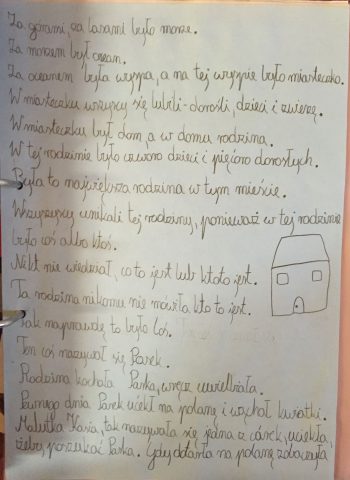 Za górami, za lasami było morze.
Za morzem był ocean.
Za oceanem była wyspa, a na tej wyspie było miasteczko.
W miasteczku wszyscy się lubili - dorośli, dzieci i zwierzę.
W miasteczku był dom, a w domu rodzina.
W tej rodzinie było czworo dzieci i pięcioro dorosłych.
Była to największa rodzina w tym mieście.
Wszyscy unikali tej rodziny, ponieważ w tej rodzinie
było coś albo ktoś.
Nikt nie wiedział, co to jest lub kto to jest.
Ta rodzina nikomu nie mówiła kto to jest.
Tak naprawdę to było coś.
Ten coś nazywał się Parek.
Rodzina kochała Parka, wręcz uwielbiała.
Pewnego dnia Parek uciekł na polanę i wąchał kwiatki.
Malutka Kasia, tak nazywała się jedna z córek, uciekła,
żeby poszukać Parka. Gdy dotarła na polanę zobaczyła